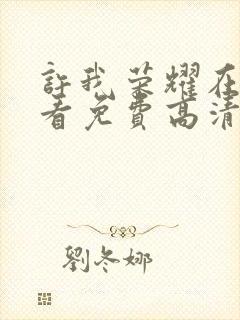 許我荣耀在
看免费高清
劉冬娜